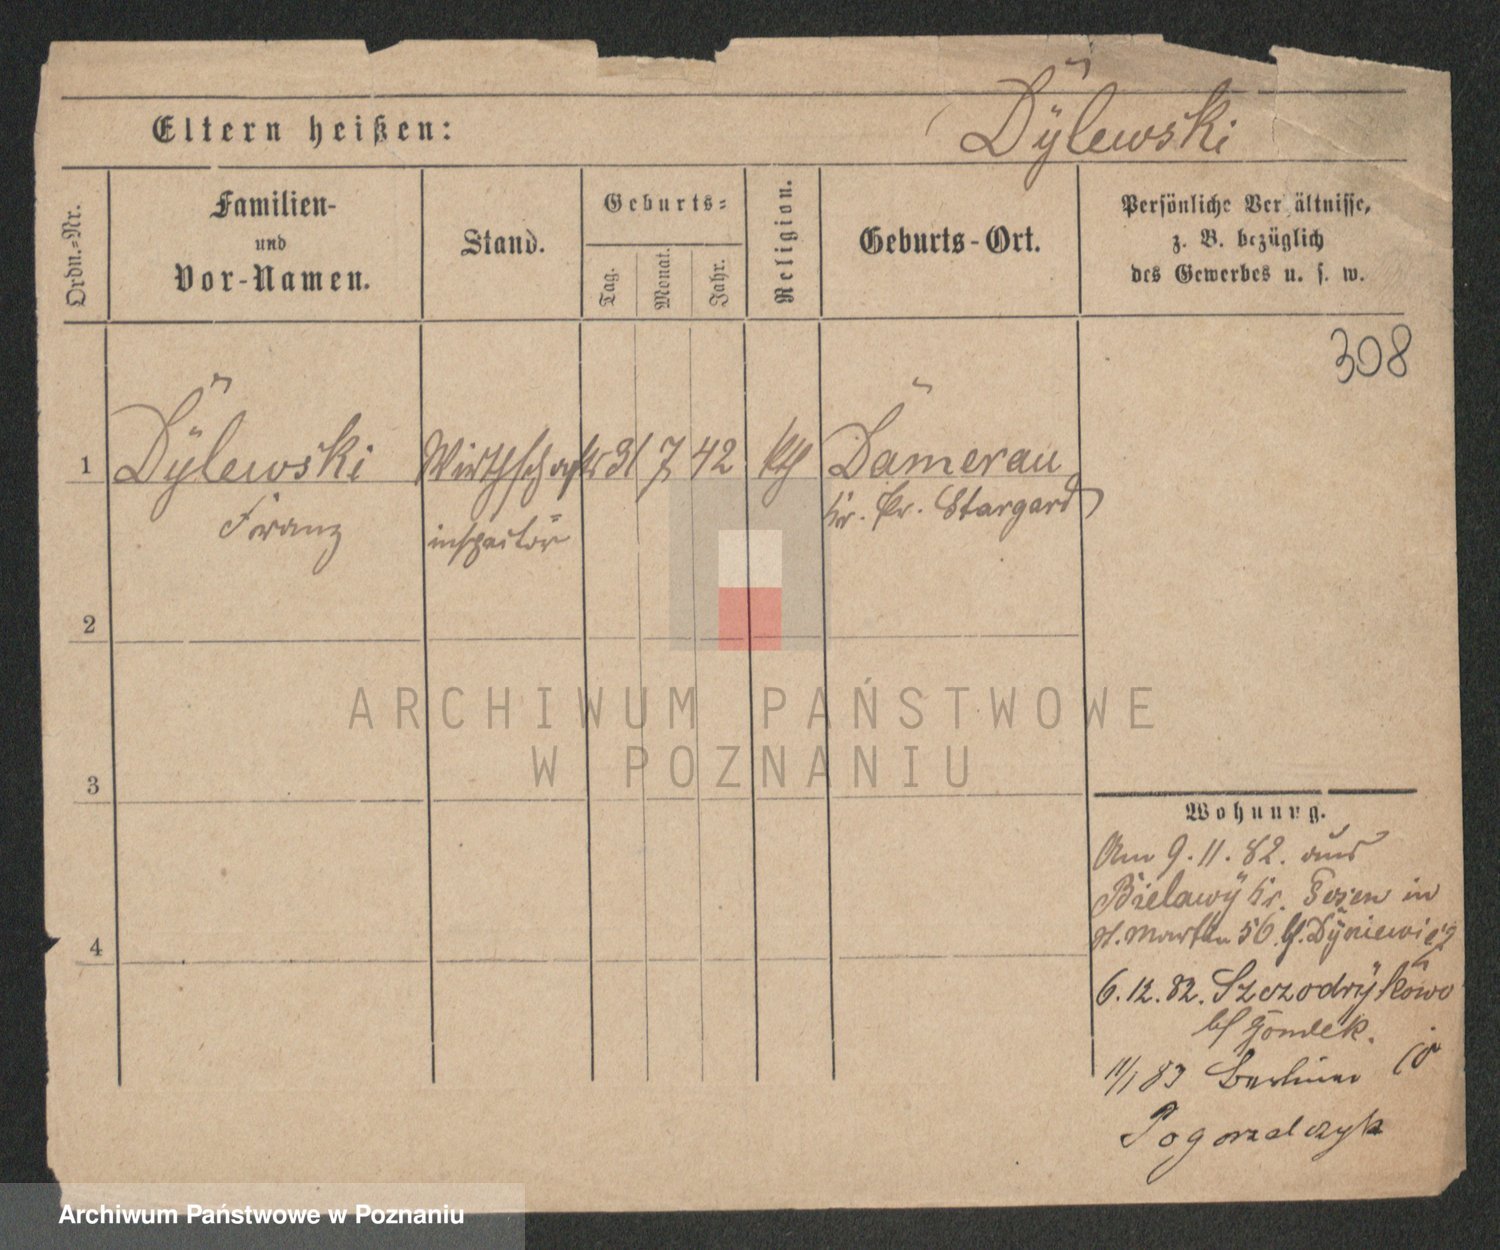 Dÿlewski
Eltern heißen:
Ordn.=Nr.
Familien-
und
Vor-Namen.
Stand.
Geburts=
Tag.
Monat.
Jahr.
Religion.
Geburts-Ort.
Persönliche Ver ältnisse,
z. B. bezüglich
des Gewerbes u. s. w.
308
1 Dÿlewski Wirthschafts 31 7 42 kth Damerau
Franz inspector Kr. Pr. Stargard
2
3
4
Wohnung.
Am 9.11.82. aus
Bielawÿ Kr. Posen in
St. Martin 56 bf. Dÿniewicz
6.12.82. Szczodrÿkowo
bf Gondek.
11/1 83 Berliner
Pogorzalczyk
ARCHIWUM PAŃSTWOWE
W POZNANIU
Archiwum Państwowe w Poznaniu